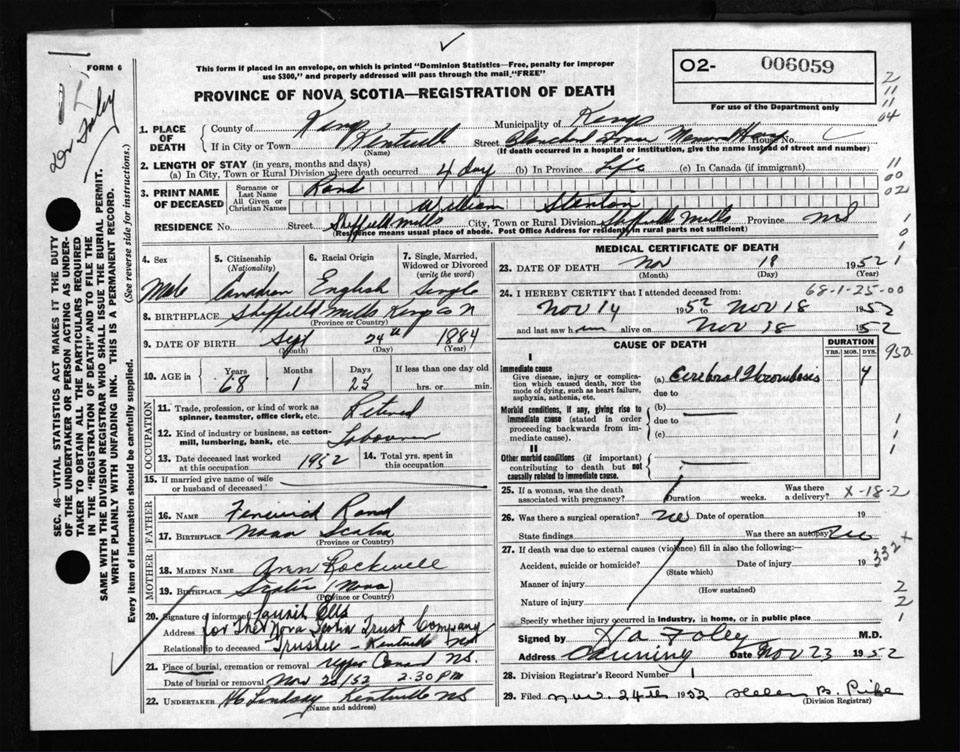 FORM 6
This form if placed in an envelope, on which is printed "Dominion Statistics—Free, penalty for improper
use $300," and properly addressed will pass through the mail "FREE"
O2- 006059
For use of the Department only
PROVINCE OF NOVA SCOTIA—REGISTRATION OF DEATH
Dr Foley
2
11
11
04
1. PLACE OF DEATH
County of Kings Municipality of Kings
If in City or Town Kentville Street Blanchard Fraser Memorial Hosp House No.
(Name) (If death occurred in a hospital or institution, give the name instead of street and number)
2. LENGTH OF STAY (in years, months and days)
(a) In City, Town or Rural Division where death occurred 4 day (b) In Province Life (c) In Canada (if immigrant)
11
00
02
3. PRINT NAME OF DECEASED
Surname or Last Name Rand
All Given or Christian Names William Stenton
RESIDENCE No. Street Sheffield Mills City, Town or Rural Division Sheffield Mills Province NS
(Residence means usual place of abode. Post Office Address for residents in rural parts not sufficient)
SEC. 46—VITAL STATISTICS ACT MAKES IT THE DUTY
OF THE UNDERTAKER OR PERSON ACTING AS UNDER-
TAKER TO OBTAIN ALL THE PARTICULARS REQUIRED
IN THE "REGISTRATION OF DEATH" AND TO FILE THE
SAME WITH THE DIVISION REGISTRAR WHO SHALL ISSUE THE BURIAL PERMIT.
WRITE PLAINLY WITH UNFADING INK. THIS IS A PERMANENT RECORD.
Every item of information should be carefully supplied. (See reverse side for instructions.)
4. Sex 5. Citizenship (Nationality) 6. Racial Origin 7. Single, Married, Widowed or Divorced (write the word)
Male Canadian English Single
8. BIRTHPLACE Sheffield Mills Kings Co N
(Province or Country)
9. DATE OF BIRTH Sept 24th 1884
(Month) (Day) (Year)
10. AGE in Years Months Days If less than one day old
68 1 25 hrs. or min.
OCCUPATION
11. Trade, profession, or kind of work as
spinner, teamster, office clerk, etc. Retired
12. Kind of industry or business, as cotton-
mill, lumbering, bank, etc. Labourer
13. Date deceased last worked at this occupation 1952 14. Total yrs. spent in this occupation
15. If married give name of wife or husband of deceased
FATHER
16. Name Fenwick Rand
17. Birthplace Nova Scotia
(Province or Country)
MOTHER
18. Maiden Name Ann Rockwell
19. Birthplace Scotia (Nova)
(Province or Country)
20. Signature of informant Ells
Address for The Nova Scotia Trust Company
Relationship to deceased Trustee - Kentville NS
21. Place of burial, cremation or removal Upper Canard NS.
Date of burial or removal Nov 20/52 2.30 PM
22. UNDERTAKER Lindsay Kentville NS
(Name and address)
MEDICAL CERTIFICATE OF DEATH
23. DATE OF DEATH Nov 18 1952
(Month) (Day)
24. I HEREBY CERTIFY that I attended deceased from: 68-1-25-00
Nov 14 1952 to Nov 18 1952
and last saw him alive on Nov 18 1952
CAUSE OF DEATH DURATION
YRS. MOS. DYS.
950
I
Immediate cause
Give disease, injury or compli-
cation which caused death, not the
mode of dying, such as heart failure,
asphyxia, asthenia, etc.
(a) Cerebral Thrombosis 4
due to
Morbid conditions, if any, giving rise to
immediate cause (stated in order
proceeding backwards from im-
mediate cause).
(b)
due to
(c)
II
Other morbid conditions (if important)
contributing to death but not
causally related to immediate cause.
25. If a woman, was the death associated with pregnancy? Duration weeks. Was there a delivery? X-18-2
26. Was there a surgical operation? No Date of operation 19
State findings Was there an autopsy? No
27. If death was due to external causes (violence) fill in also the following:— 332 X
Accident, suicide or homicide? Date of injury 19
(State which)
Manner of injury
(How sustained)
Nature of injury
Specify whether injury occurred in industry, in home, or in public place
Signed by Foley M.D.
Address Canning Date Nov 23 1952
28. Division Registrar's Record Number 1
29. Filed Nov. 24th 1952 Helen B. Pike
(Division Registrar)